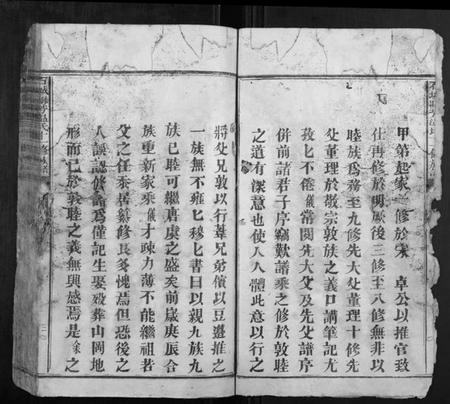 甲第起家一修於宋 卓公以推官致
仕再修於明厥後三修至八修無非以
睦族爲務至九修先大父董理十修先
父董理於敬宗敦族之義口講筆記尤
孜匕不倦儀嘗閱先大父及先父譜序
併前諸君子序竊歎譜乘之修於敦睦
之道有深意也使人人體此意以行之
將父兄敦以行葦兄弟儐以豆籩推之
一族無不雍匕穆匕書曰以親九族九
族已睦可繼唐虞之盛矣前歲庚辰合
族重新家乘儀才疎力薄不能繼祖若
父之任忝居纂修良多愧焉但恐後之
人誤認於譜爲僅記生娶殁葬山岡地
形而已於敦睦之義無興感焉是余之